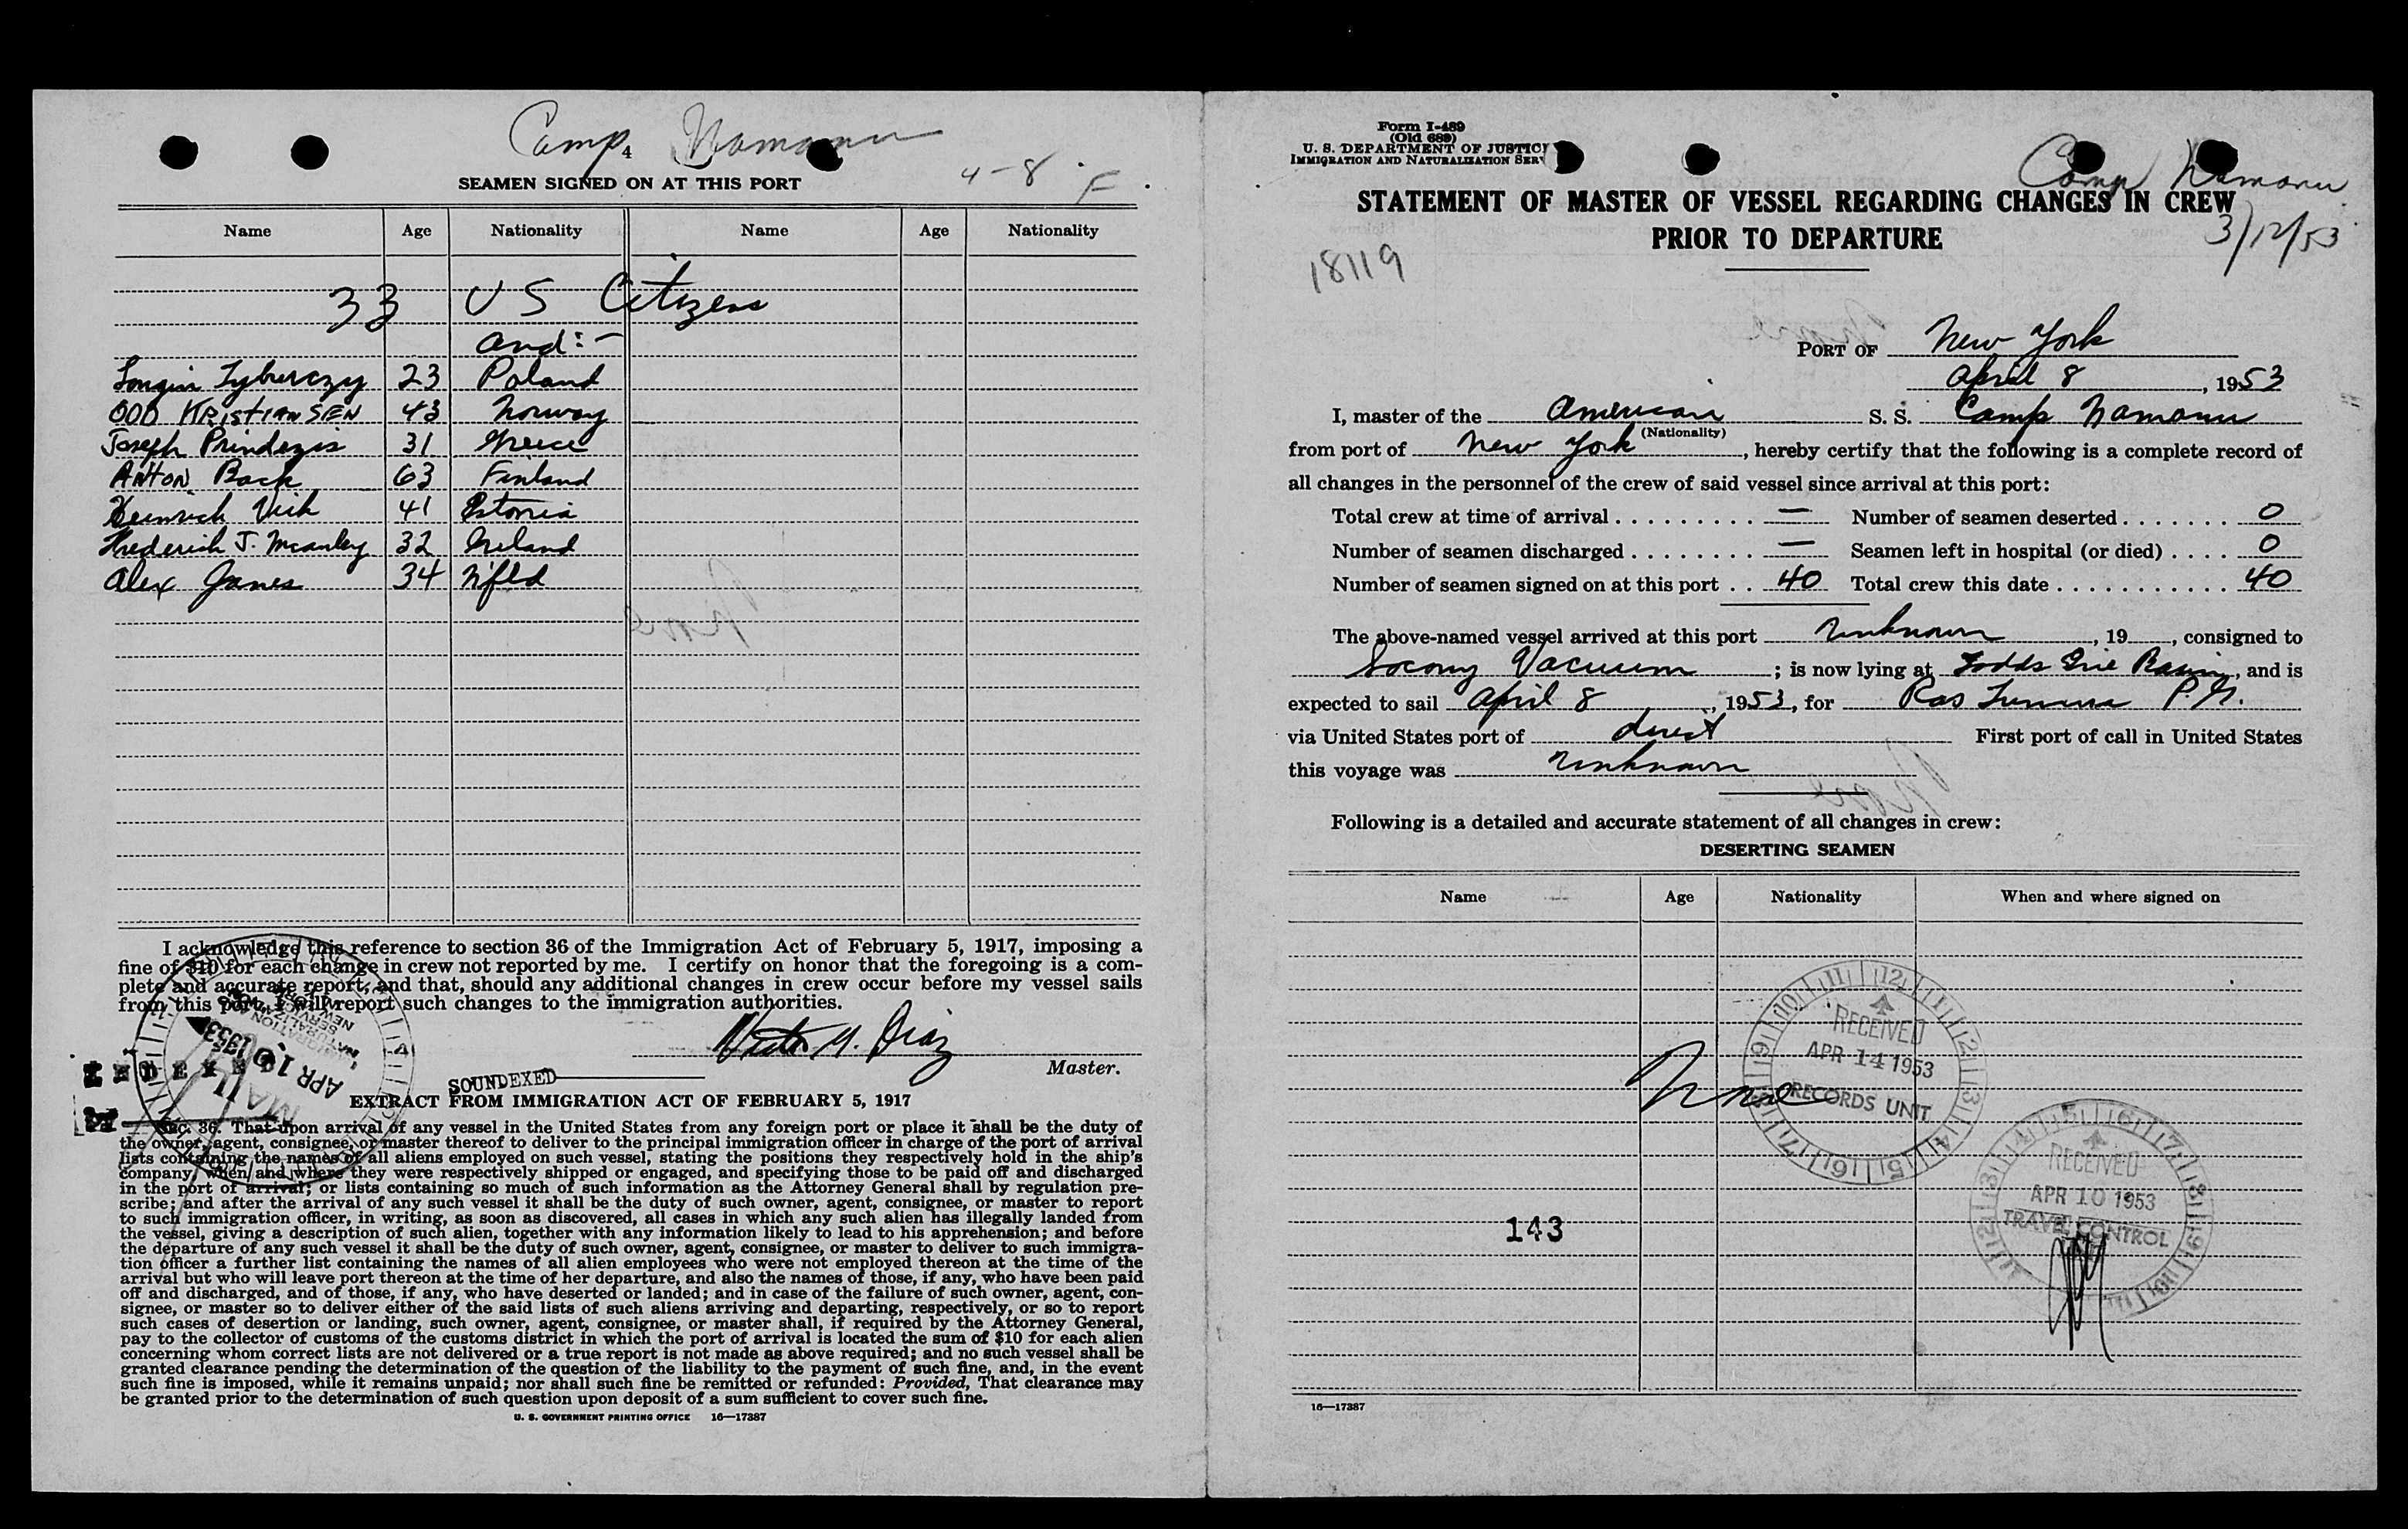 Camp Namanu
4
SEAMEN SIGNED ON AT THIS PORT
4-8 F
Name Age Nationality Name Age Nationality
33 US Citizens
and:-
23 Poland
ODD KRISTIANSEN 43 Norway
Joseph Prindezis 31 Greece
ANTON Back 63 Finland
Heinrich Vick 41 Estonia
Frederick J. McAuley 32 Ireland
Alex Janes 34 Nfld
I acknowledge this reference to section 36 of the Immigration Act of February 5, 1917, imposing a
fine of $10 for each change in crew not reported by me. I certify on honor that the foregoing is a com-
plete and accurate report, and that, should any additional changes in crew occur before my vessel sails
from this port, I will report such changes to the immigration authorities.
APR 10 1953
Victor M. Diaz
Master.
INDEXED
SOUNDEXED
EXTRACT FROM IMMIGRATION ACT OF FEBRUARY 5, 1917
Sec. 36. That upon arrival of any vessel in the United States from any foreign port or place it shall be the duty of
the owner, agent, consignee, or master thereof to deliver to the principal immigration officer in charge of the port of arrival
lists containing the names of all aliens employed on such vessel, stating the positions they respectively hold in the ship's
company, when and where they were respectively shipped or engaged, and specifying those to be paid off and discharged
in the port of arrival; or lists containing so much of such information as the Attorney General shall by regulation pre-
scribe; and after the arrival of any such vessel it shall be the duty of such owner, agent, consignee, or master to report
to such immigration officer, in writing, as soon as discovered, all cases in which any such alien has illegally landed from
the vessel, giving a description of such alien, together with any information likely to lead to his apprehension; and before
the departure of any such vessel it shall be the duty of such owner, agent, consignee, or master to deliver to such immigra-
tion officer a further list containing the names of all alien employees who were not employed thereon at the time of the
arrival but who will leave port thereon at the time of her departure, and also the names of those, if any, who have been paid
off and discharged, and of those, if any, who have deserted or landed; and in case of the failure of such owner, agent, con-
signee, or master so to deliver either of the said lists of such aliens arriving and departing, respectively, or so to report
such cases of desertion or landing, such owner, agent, consignee, or master shall, if required by the Attorney General,
pay to the collector of customs of the customs district in which the port of arrival is located the sum of $10 for each alien
concerning whom correct lists are not delivered or a true report is not made as above required; and no such vessel shall be
granted clearance pending the determination of the question of the liability to the payment of such fine, and, in the event
such fine is imposed, while it remains unpaid; nor shall such fine be remitted or refunded: Provided, That clearance may
be granted prior to the determination of such question upon deposit of a sum sufficient to cover such fine.
U. S. GOVERNMENT PRINTING OFFICE 16—17387
Form I-489
(Old 689)
U. S. DEPARTMENT OF JUSTICE
IMMIGRATION AND NATURALIZATION SERV
Camp Namanu
STATEMENT OF MASTER OF VESSEL REGARDING CHANGES IN CREW
PRIOR TO DEPARTURE
3/12/53
18119
PORT OF New York
April 8, 1953
I, master of the American S. S. Camp Namanu
(Nationality)
from port of New York, hereby certify that the following is a complete record of
all changes in the personnel of the crew of said vessel since arrival at this port:
Total crew at time of arrival — Number of seamen deserted 0
Number of seamen discharged — Seamen left in hospital (or died) 0
Number of seamen signed on at this port 40 Total crew this date 40
The above-named vessel arrived at this port Unknown, 19, consigned to
Socony Vacuum; is now lying at Todds Erie Basin, and is
expected to sail April 8, 1953, for Ras Tanura P.G.
via United States port of direct First port of call in United States
this voyage was Unknown
Following is a detailed and accurate statement of all changes in crew:
DESERTING SEAMEN
Name Age Nationality When and where signed on
RECEIVED
APR 14 1953
RECORDS UNIT
None
RECEIVED
APR 10 1953
TRAVEL CONTROL
143
16—17387